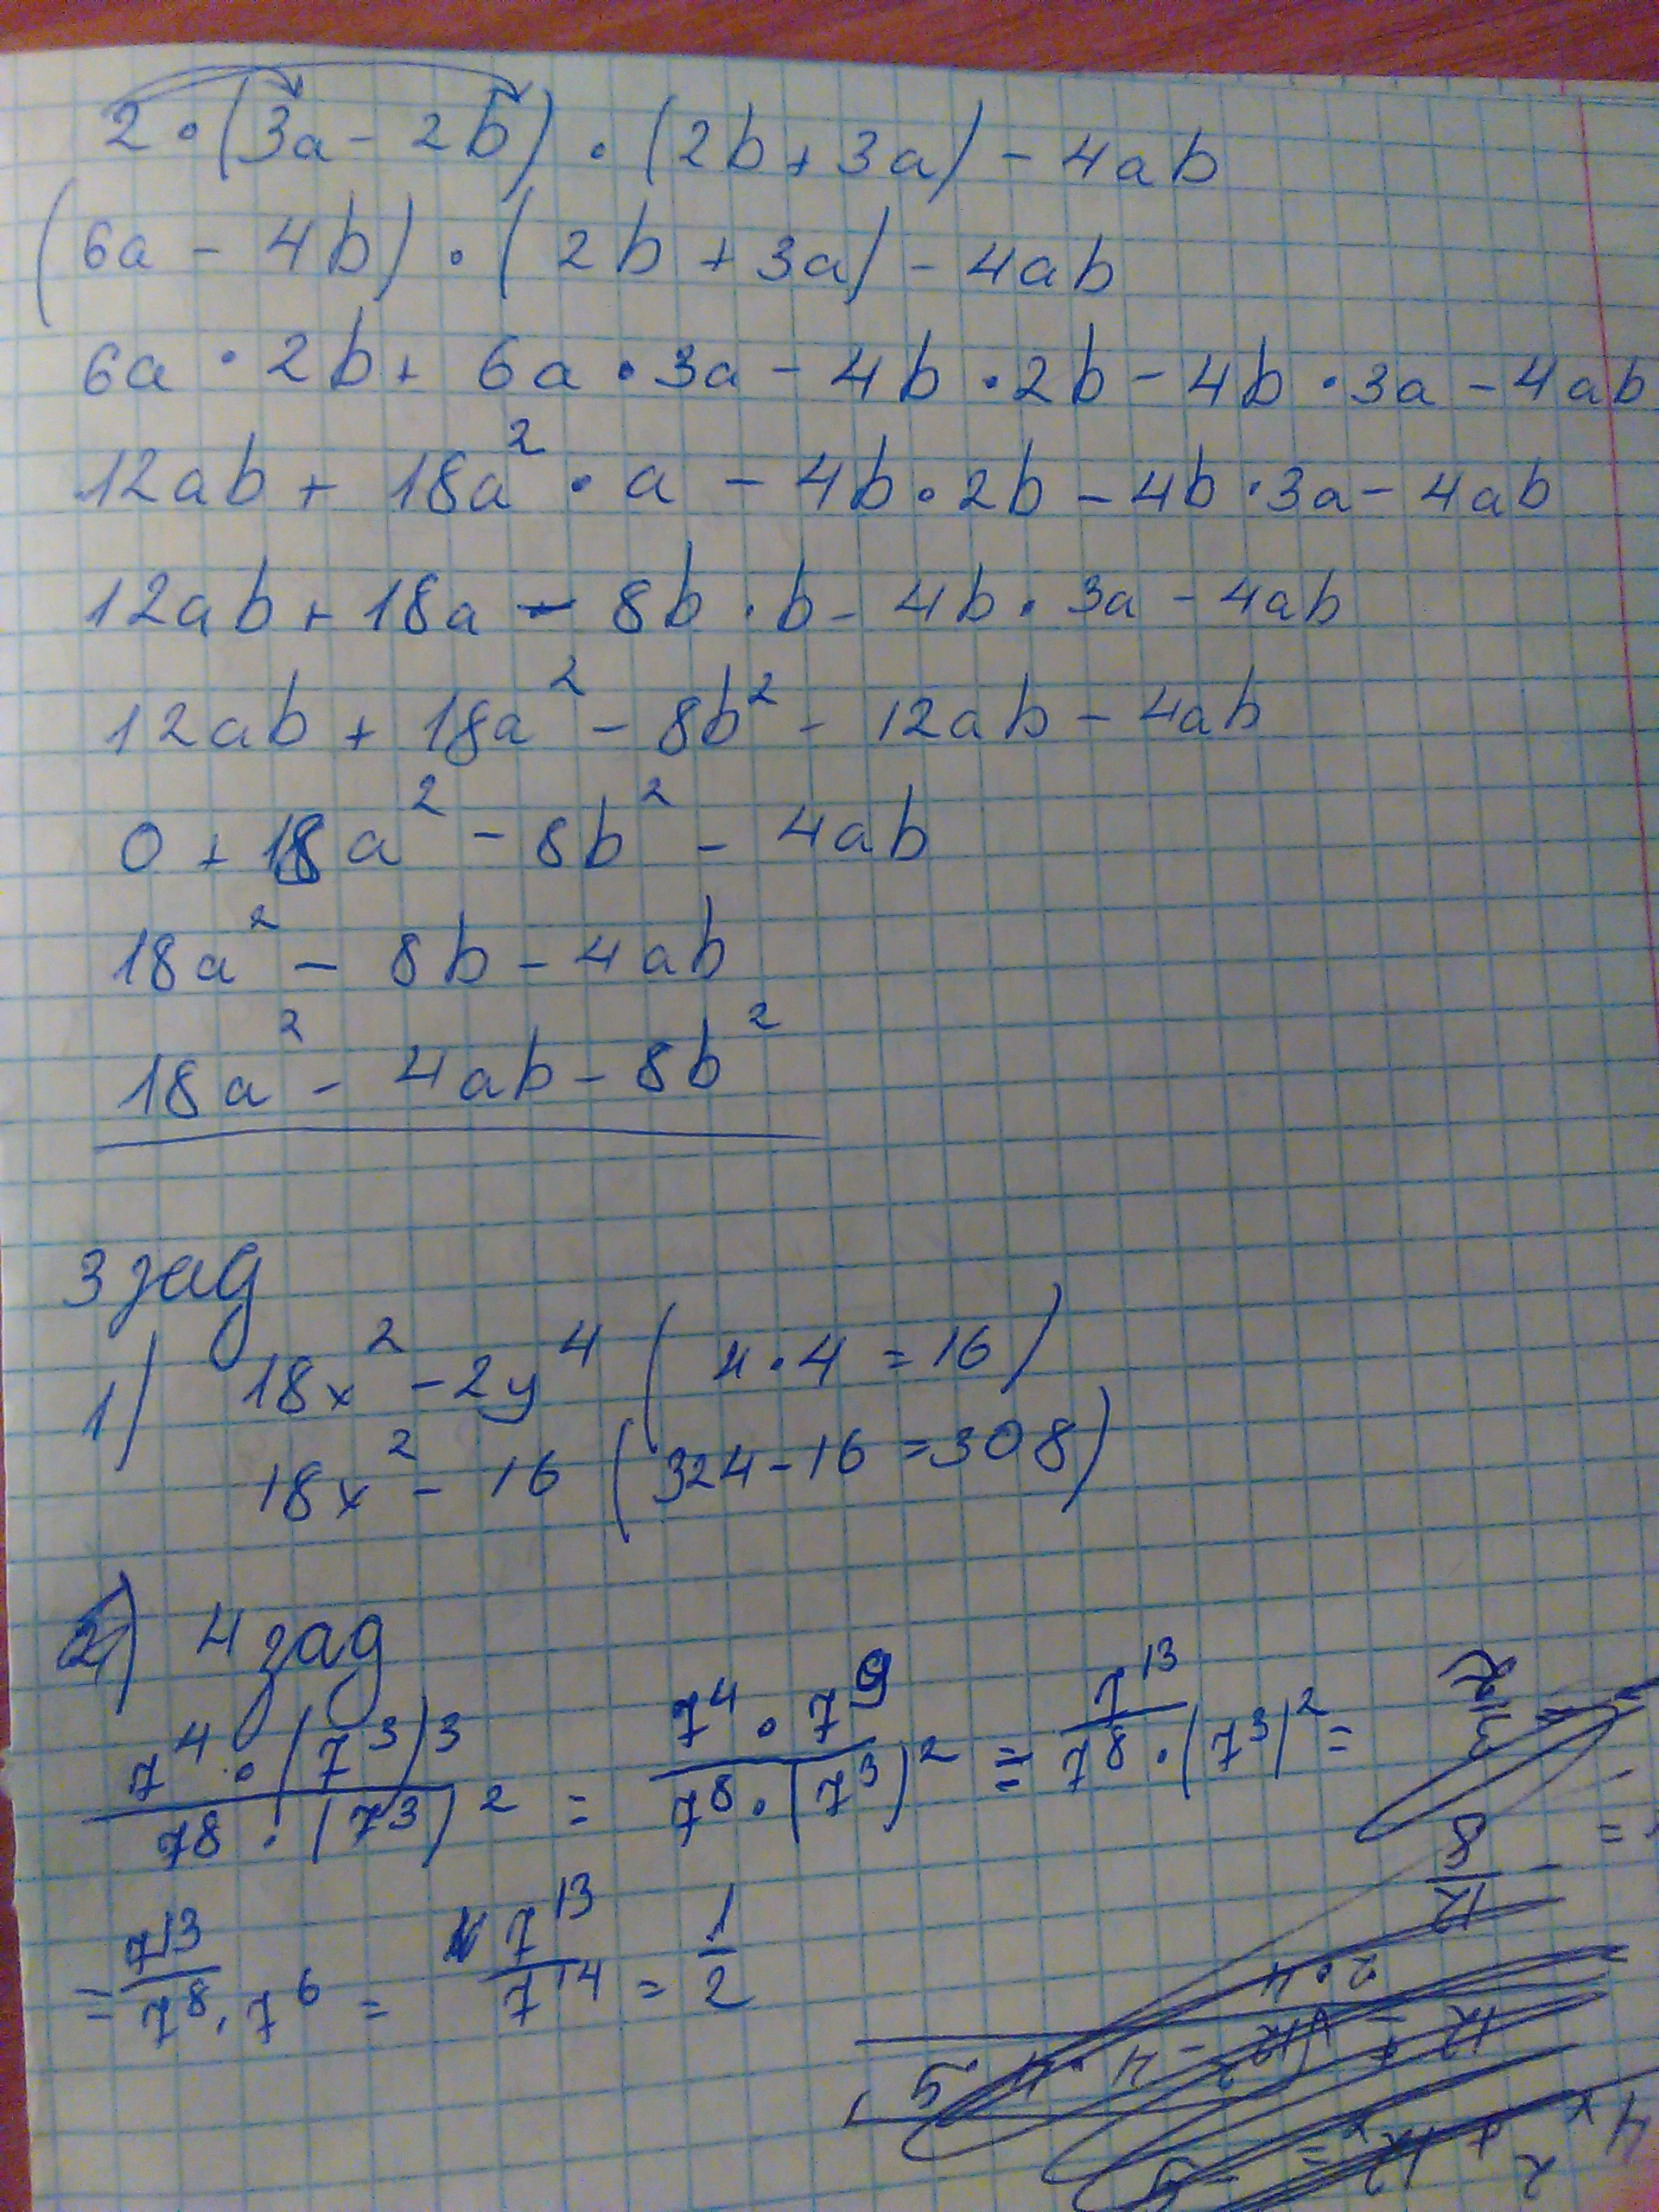 2 · (3a - 2b) · (2b + 3a) - 4ab
(6a - 4b) · (2b + 3a) - 4ab
6a · 2b + 6a · 3a - 4b · 2b - 4b · 3a - 4ab
12ab + 18a² · a - 4b · 2b - 4b · 3a - 4ab
12ab + 18a - 8b · b - 4b · 3a - 4ab
12ab + 18a² - 8b² - 12ab - 4ab
0 + 18a² - 8b² - 4ab
18a² - 8b - 4ab
18a² - 4ab - 8b²
3 зад
1) 18x² - 2y⁴ (4 · 4 = 16)
18x² - 16 (324 - 16 = 308)
2) 4 зад
7⁴ · (7³)³ / 7⁸ · (7³)² = 7⁴ · 7⁹ / 7⁸ · (7³)² = 7¹³ / 7⁸ · (7³)² =
= 7¹³ / 7⁸ · 7⁶ = 7¹³ / 7¹⁴ = 1/2